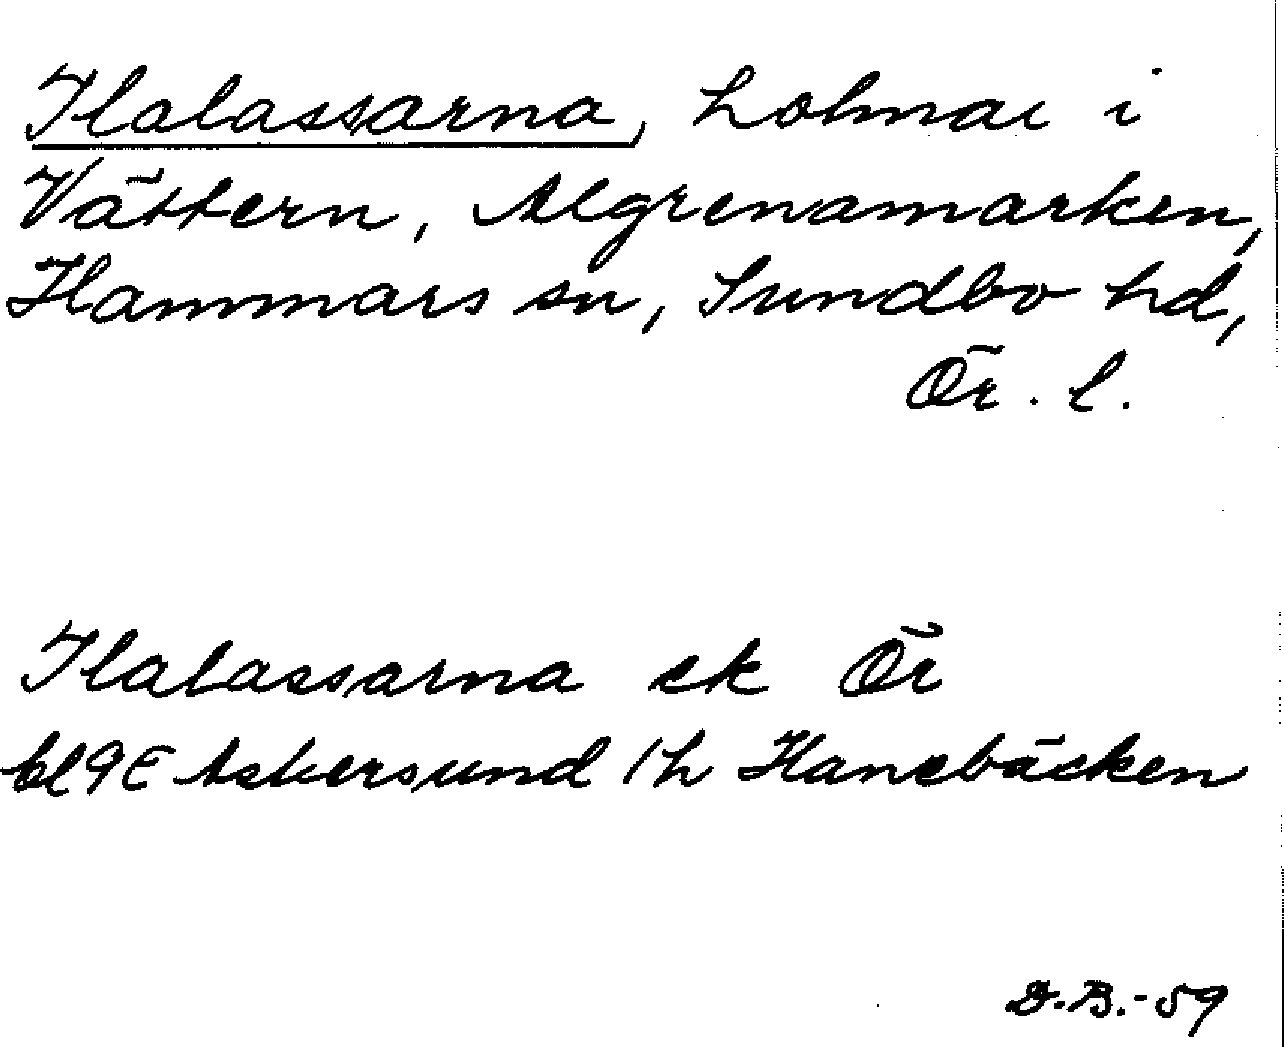 Halassarna, holmar i
Vättern, Algrenamarken,
Hammars sn, Sundbo hd,
Ör. l.
Halassarna ek Ör
bl 9E Askersund 1h Hanebäcken
D.B.-59